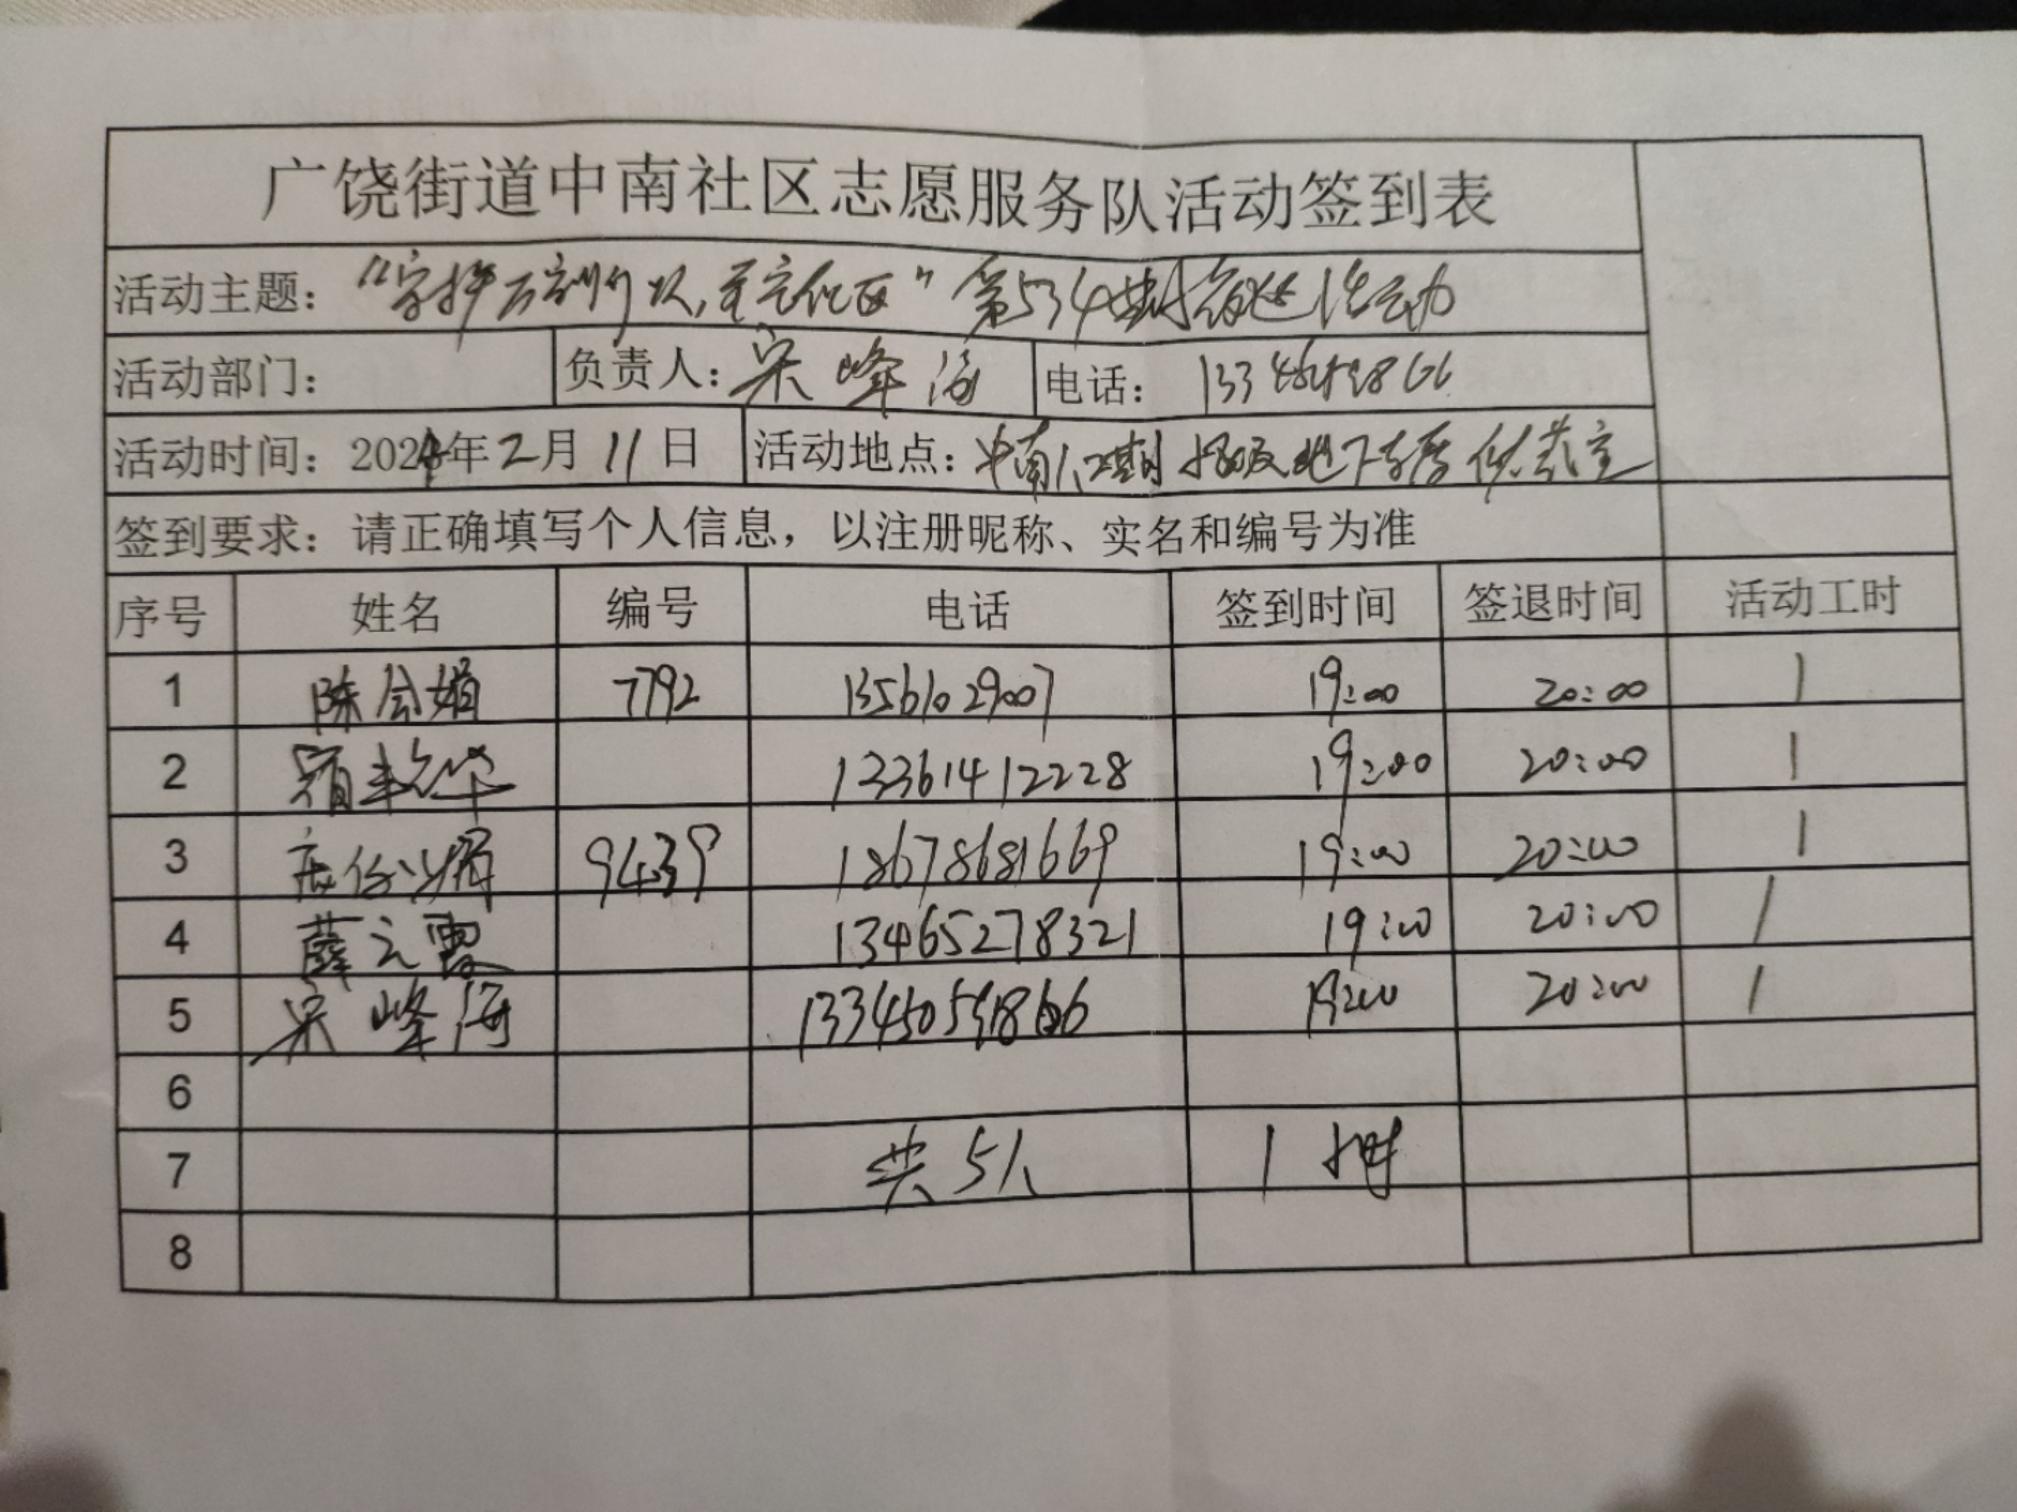 广饶街道中南社区志愿服务队活动签到表
活动主题： 第534期 活动
活动部门： 负责人：宋峰海 电话：
活动时间：2024年2月11日 活动地点：中南 期 地下
签到要求：请正确填写个人信息，以注册昵称、实名和编号为准
序号 姓名 编号 电话 签到时间 签退时间 活动工时
1 陈会娟 7792 13561029007 19:00 20:00 1
2 华 13361412228 19:00 20:00 1
3 9439 18678681669 19:00 20:00 1
4 薛云霞 13465278321 19:00 20:00 1
5 宋峰海 19:00 20:00 1
6
7 共5人 1小时
8